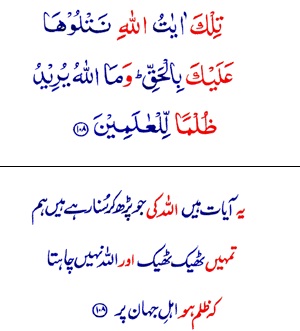 تِلْكَ اٰيٰتُ اللهِ نَتْلُوْهَا
عَلَيْكَ بِالْحَقِّ ؕ وَمَا اللهُ يُرِيْدُ
ظُلْمًا لِّلْعٰلَمِيْنَ ﴿۱۰۸﴾
یہ آیات ہیں اللہ کی جو پڑھ کر سُنا رہے ہیں ہم
تمہیں ٹھیک ٹھیک اور اللہ نہیں چاہتا
کہ ظلم ہو اہلِ جہان پر ﴿۱۰۸﴾